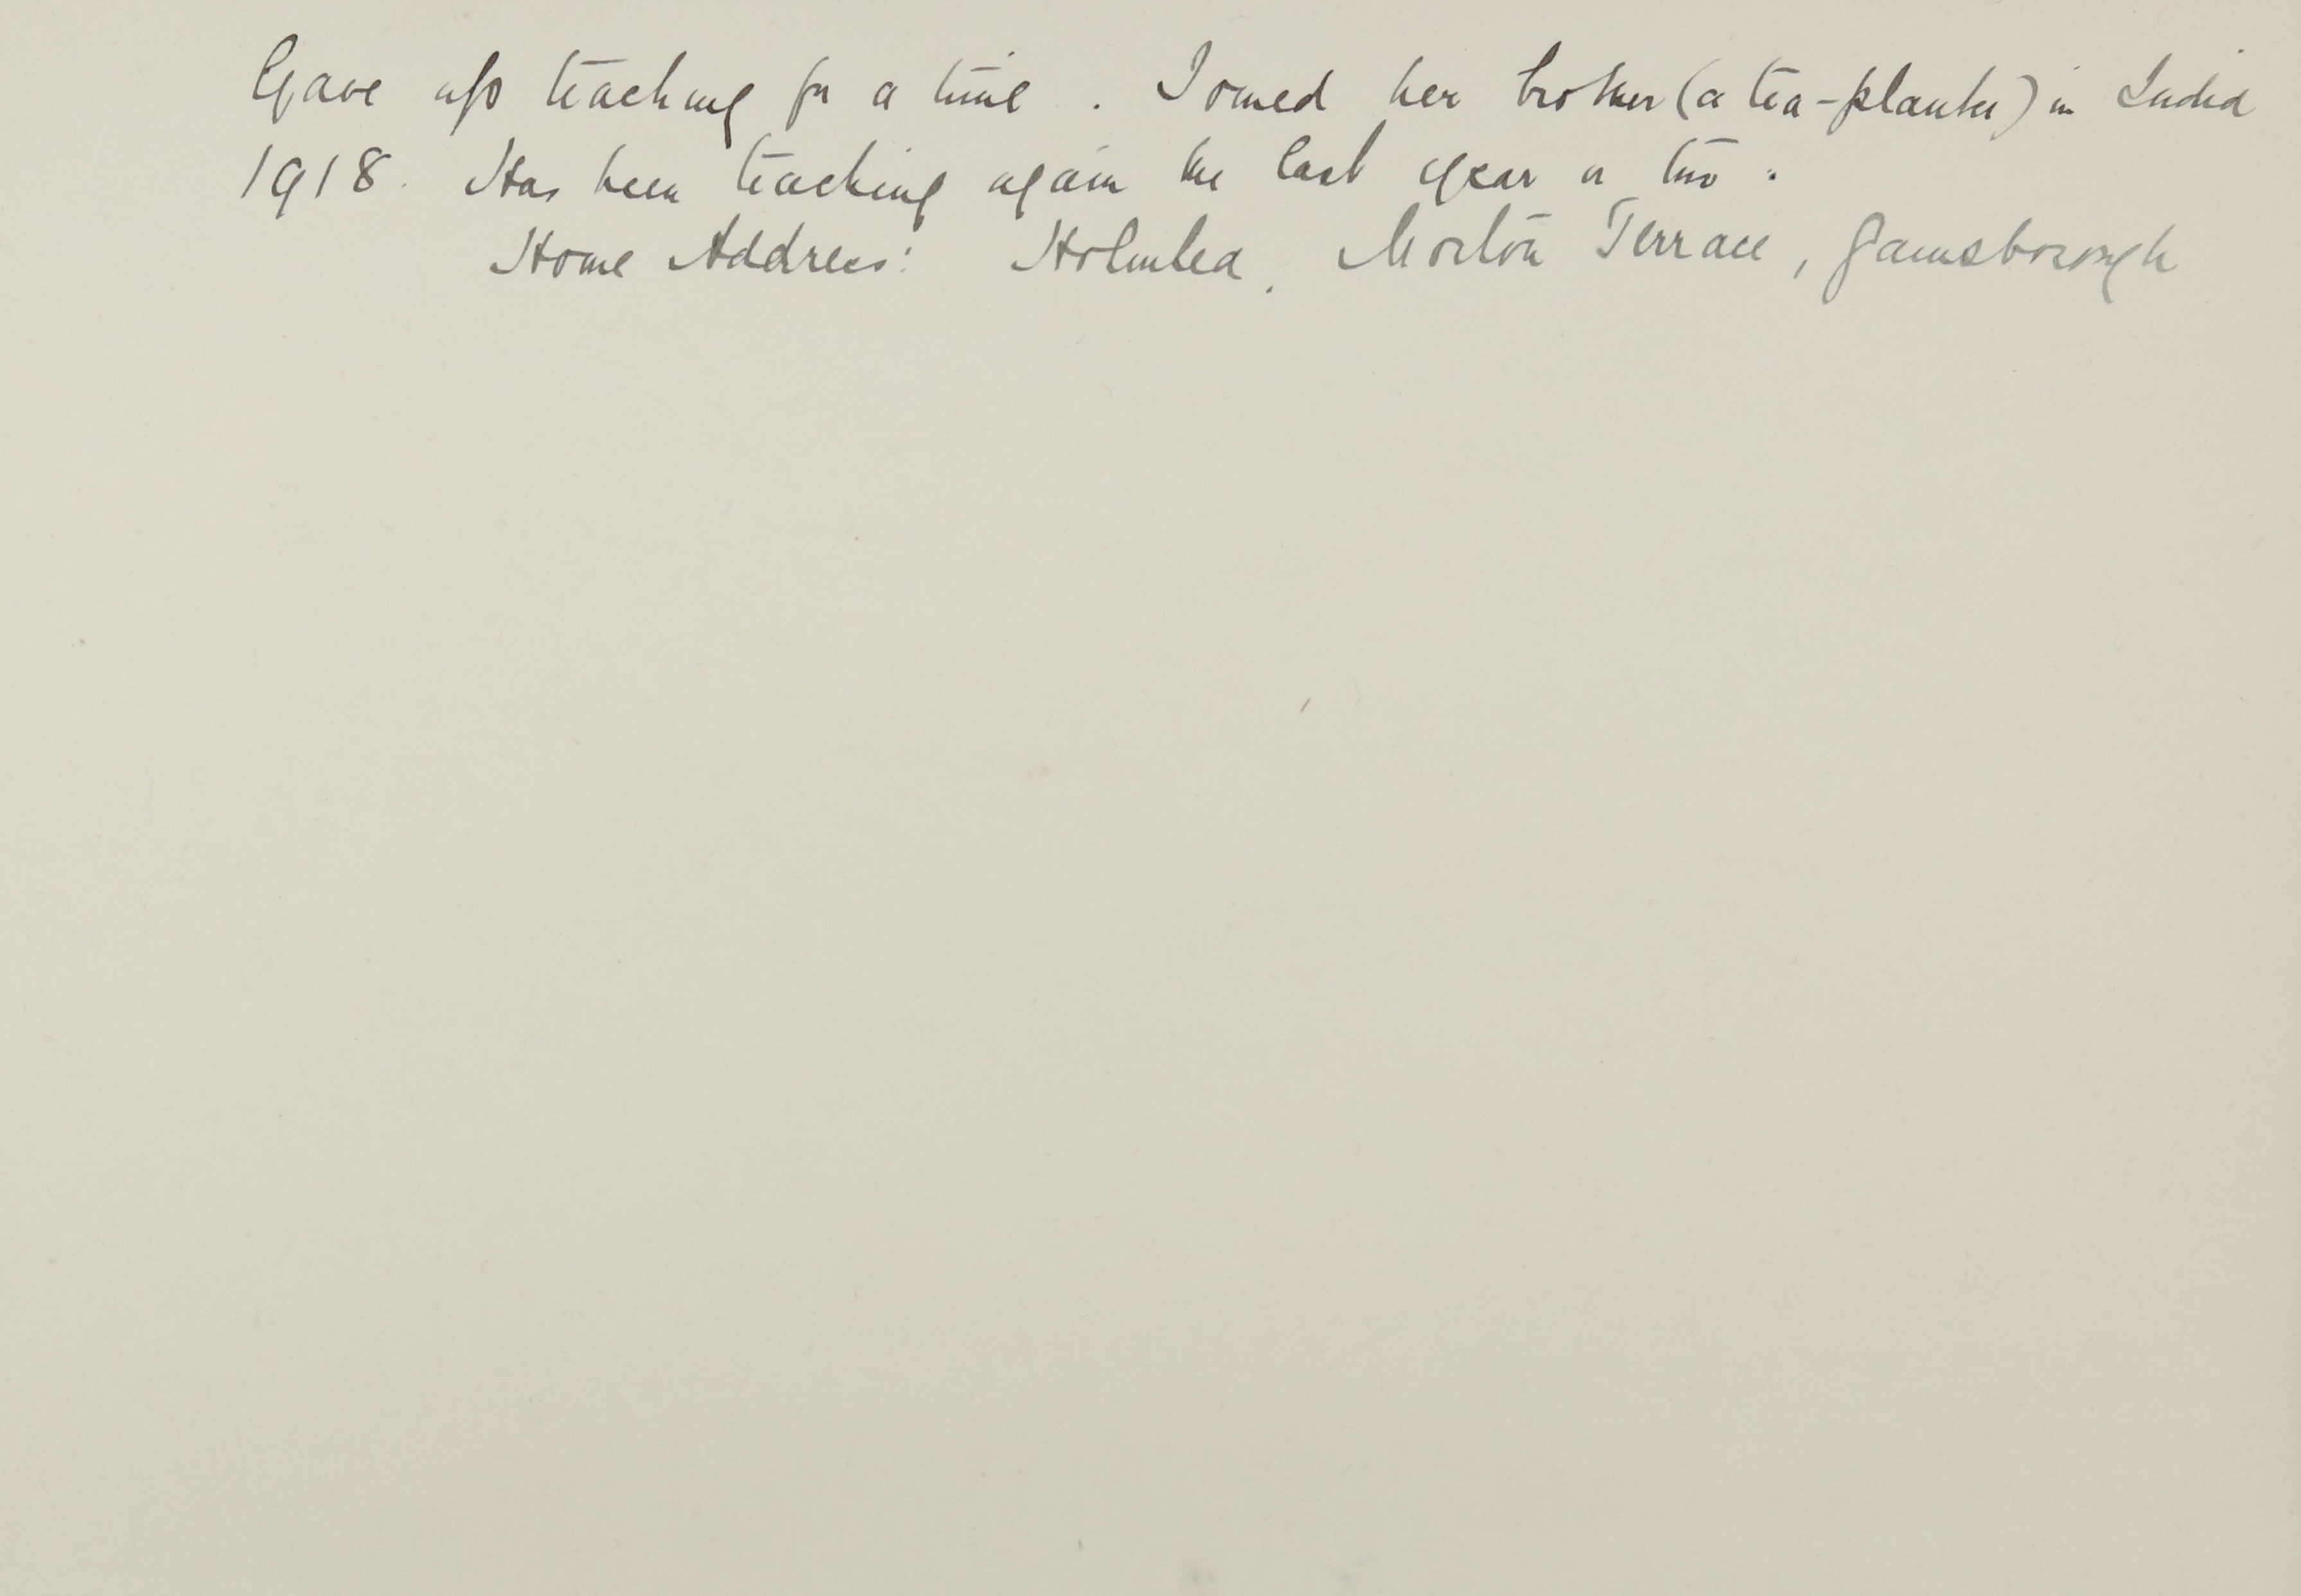 Gave up teaching for a time. Joined her brother (a tea-planter) in India
1918. Has been teaching again the last year or two.
Home Address: Holmlea, Morton Terrace, Gainsborough